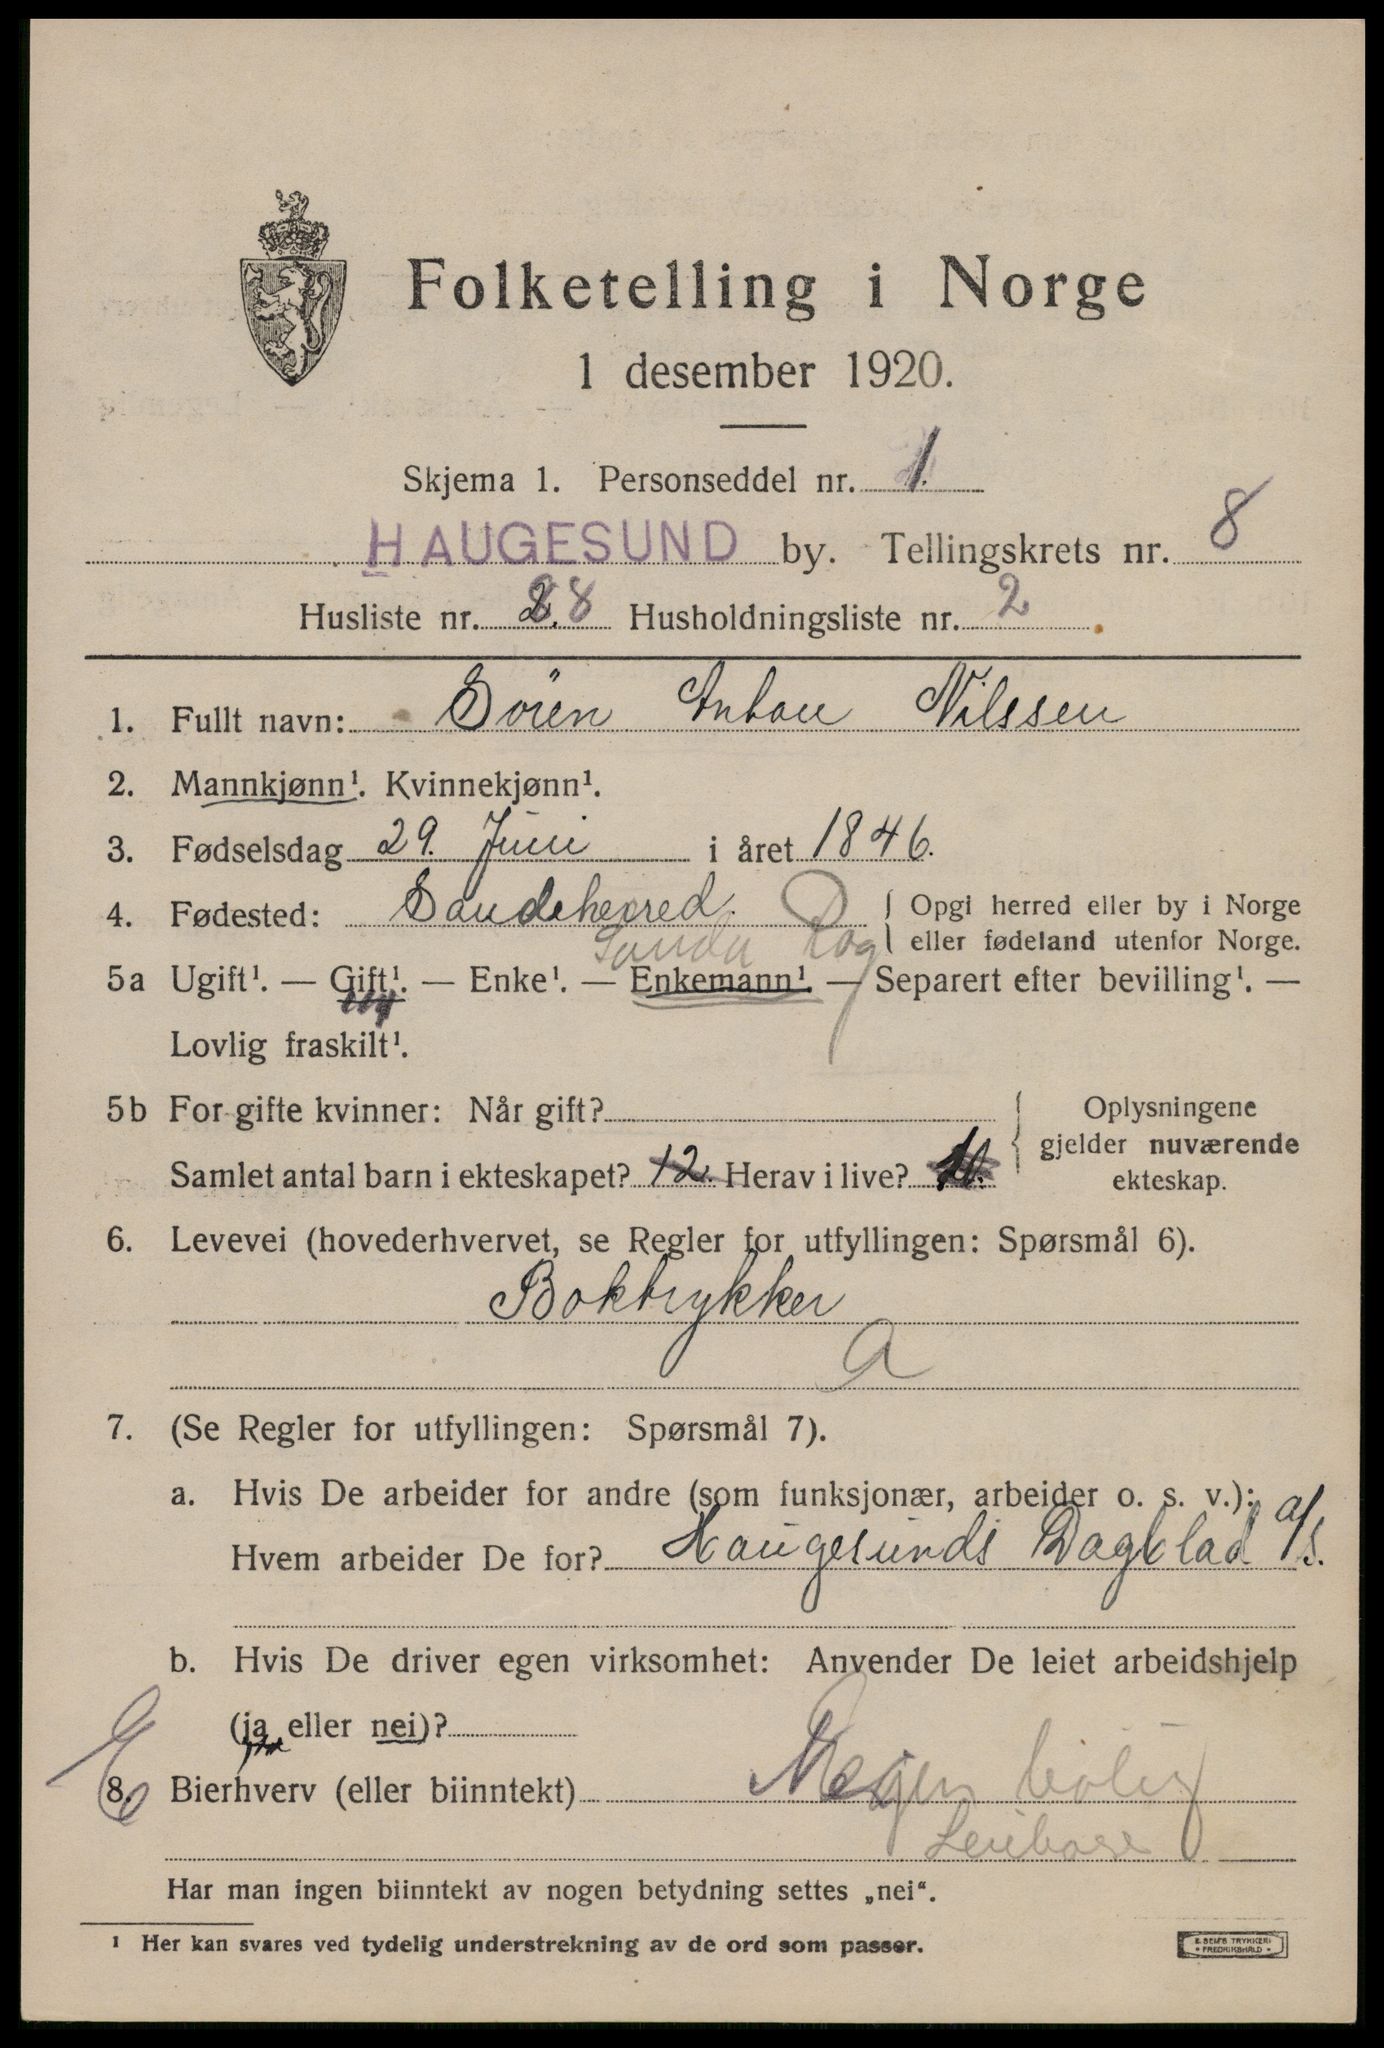 Folketelling i Norge
1 desember 1920.
Skjema 1. Personseddel nr. 1.
HAUGESUND by. Tellingskrets nr. 8
Husliste nr. 88 Husholdningsliste nr. 2
1. Fullt navn: Sören Anton Nilssen
2. Mannkjønn¹. Kvinnekjønn¹.
3. Fødselsdag 29. Juni i året 1846.
4. Fødested: Saudeherred. { Opgi herred eller by i Norge
Sauda Rog eller fødeland utenfor Norge.
5a Ugift¹. — Gift¹. — Enke¹. — Enkemann¹. — Separert efter bevilling¹. —
Lovlig fraskilt¹.
5b For gifte kvinner: Når gift? { Oplysningene
gjelder nuværende
Samlet antal barn i ekteskapet? 12. Herav i live? 10.
ekteskap.
6. Levevei (hovederhvervet, se Regler for utfyllingen: Spørsmål 6).
Boktrykker
A
7. (Se Regler for utfyllingen: Spørsmål 7).
a. Hvis De arbeider for andre (som funksjonær, arbeider o. s. v.):
Hvem arbeider De for? Haugesunds Dagblad a/s.
b. Hvis De driver egen virksomhet: Anvender De leiet arbeidshjelp
(ja eller nei)?
8. Bierhverv (eller biinntekt) Nei
Har man ingen biinntekt av nogen betydning settes „nei“.
¹ Her kan svares ved tydelig understrekning av de ord som passer.
E. SEM'S TRYKKERI
• FREDRIKSHALD •